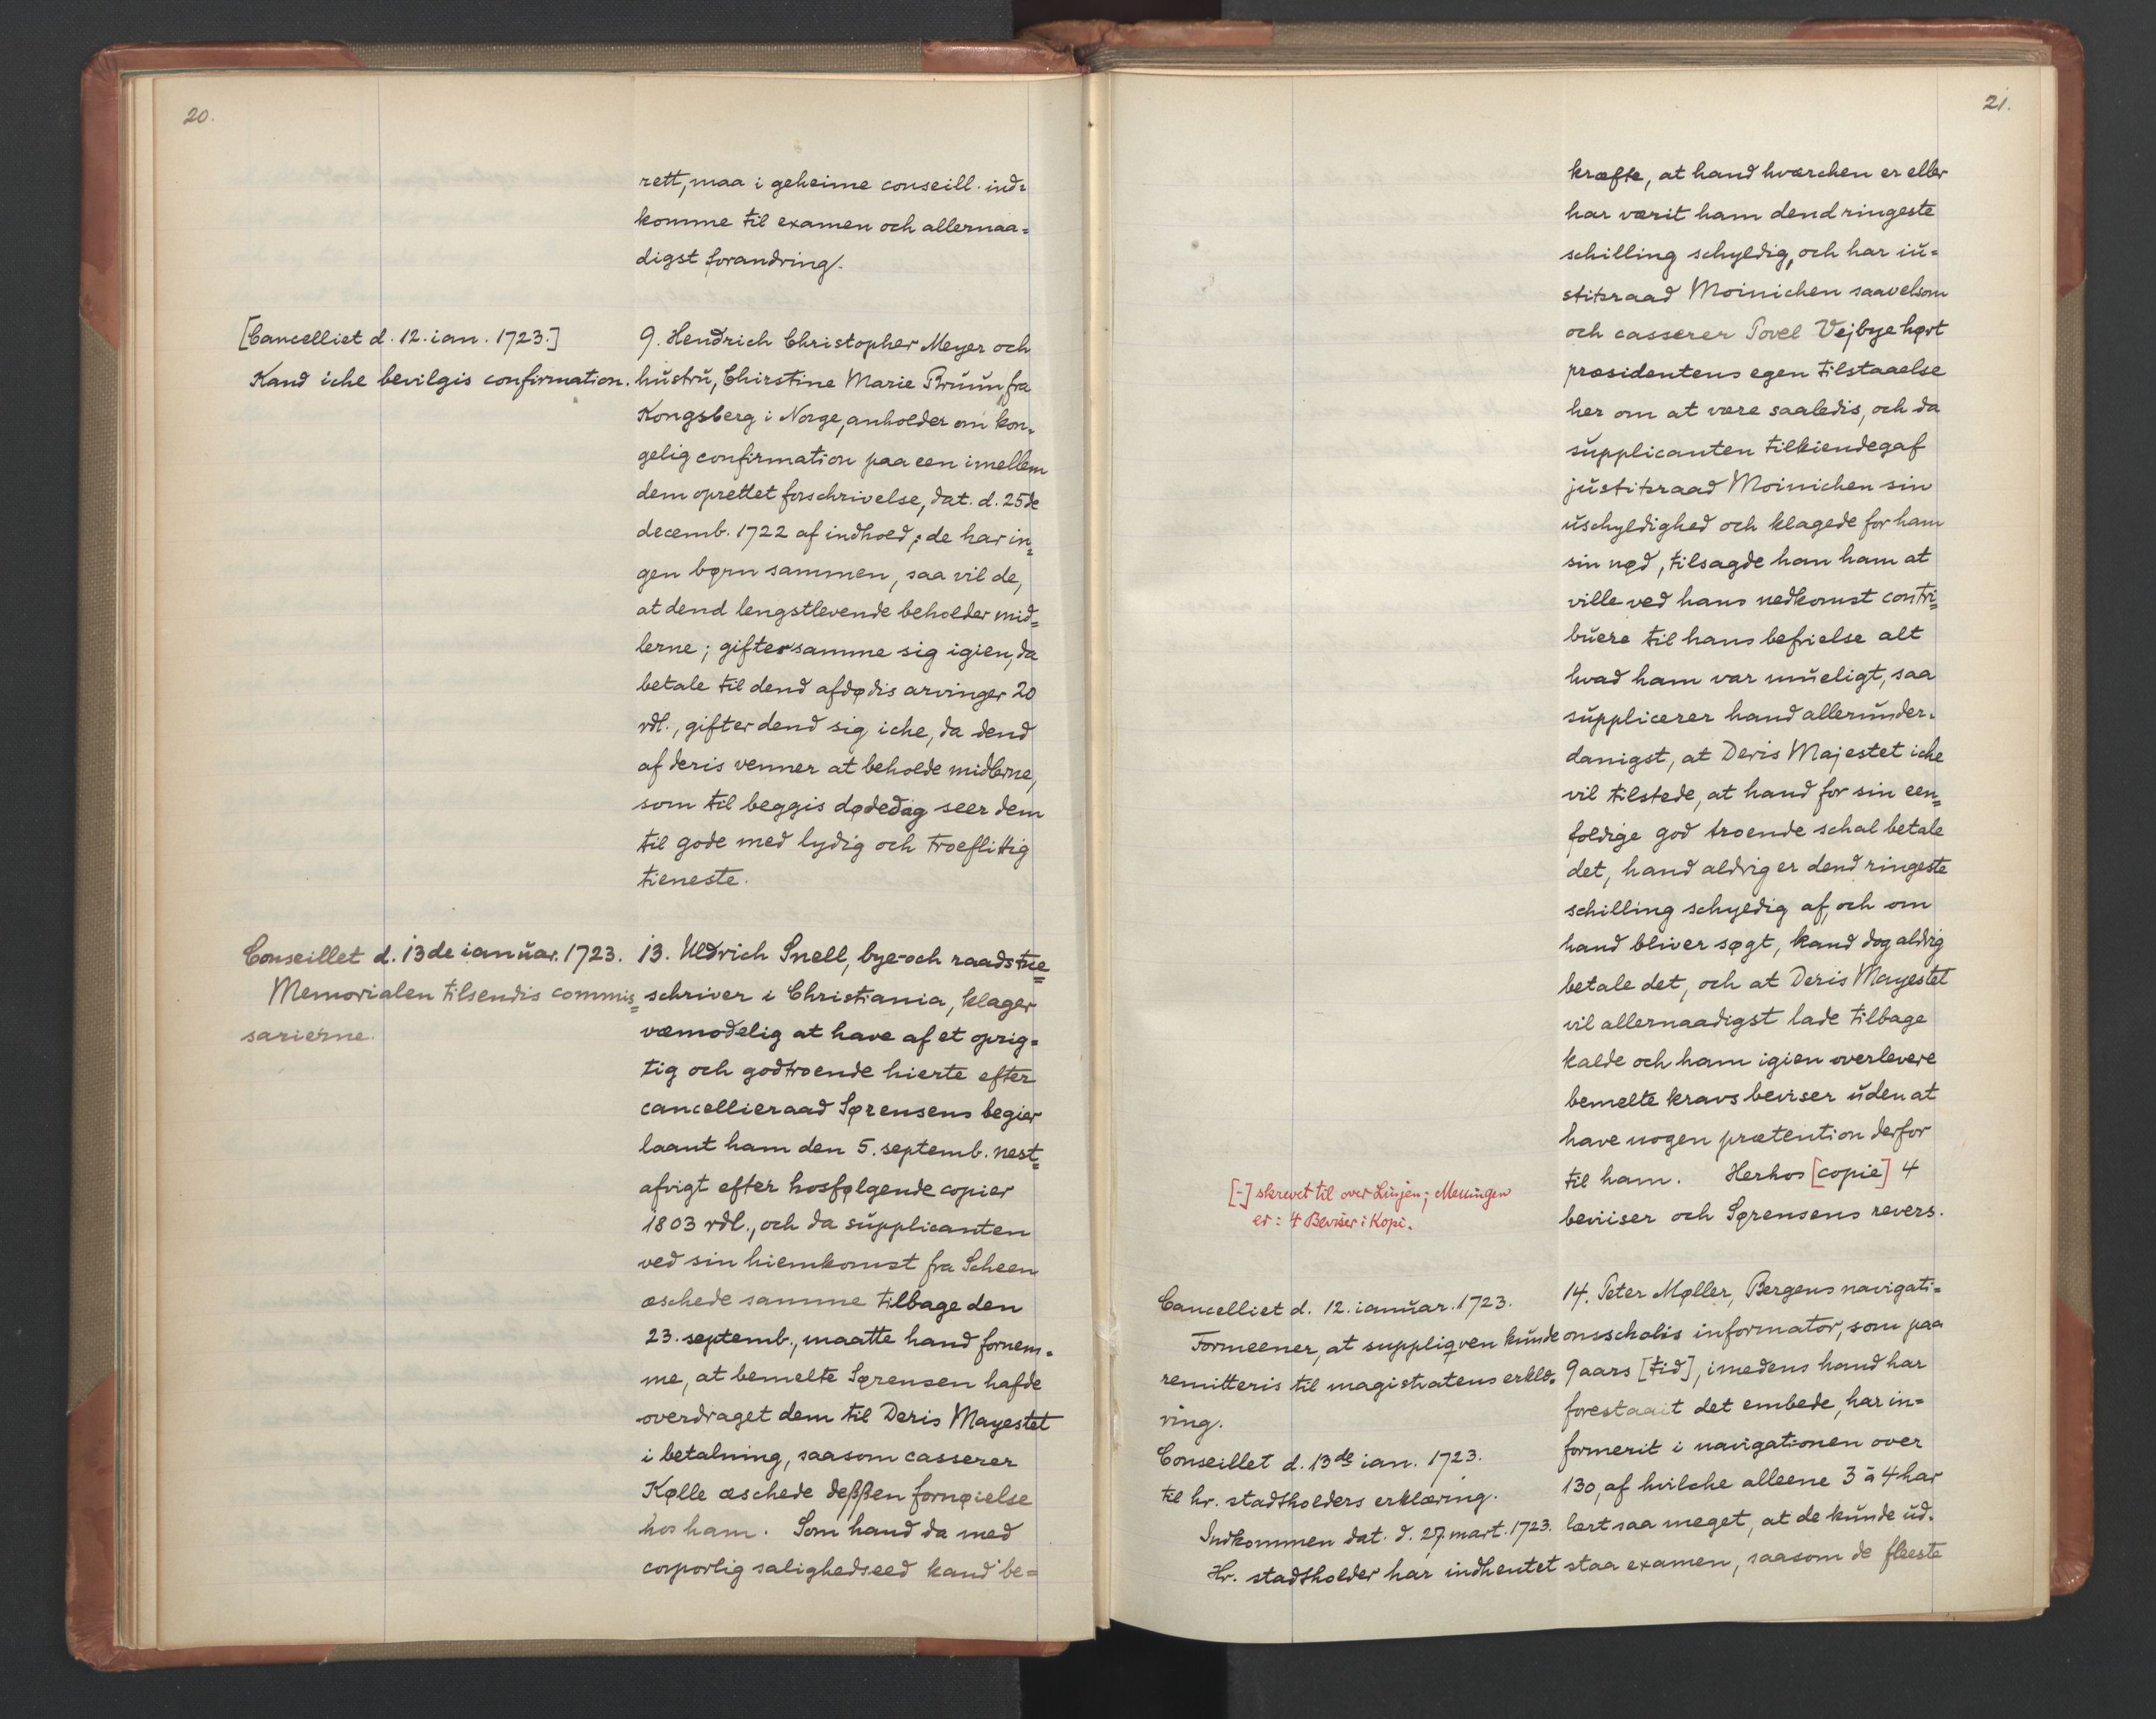 20.
rett, maa i geheime conseill ind=
komme til examen och allernaa=
digst forandring.
[Cancelliet d. 12. ian. 1723.]
Kand iche bevilgis confirmation.
9. Hendrich Christopher Meyer och
hústrú, Chirstine Marie Brúún, fra
Kongsberg i Norge, anholder om kon=
gelig confirmation paa een imellem
dem oprettet forschrivelse, dat. d. 25de
decemb. 1722 af indhoed; de har in=
gen børn sammen, saa vil de,
at dend lengstlevende beholder mid=
lerne; gifter samme sig igien, da
betale til dend afdødis arvinger 20
rdl., gifter dend sig iche, da dend
af deris venner at beholde midlerne,
som til beggis dødedag seer dem
til gode med lydig och troeflittig
tieneste.
Conseillet d. 13de ianúar. 1723.
Memorialen tilsendis commis=
sarierne.
13. Uldrich Snell, bye- och raadstue=
schriver i Christiania, klager
væmodelig at have af et oprig=
tig och godtroende hierte efter
cancellieraad Sørensens begier
laant ham den 5. septemb. nest=
afvigt efter hosfølgende copier
1803 rdl., och da súpplicanten
ved sin hiemkomst fra Scheen
æschede samme tilbage den
23. septemb., maatte hand fornem=
me, at bemelte Sørensen hafde
overdraget dem til Deris Mayestet
i betalning, saasom casserer
Kølle æschede deßßen fornøielse
hos ham. Som hand da med
corporlig salighedseed kand be=
21.
kræfte, at hand hværchen er eller
har værit ham dend ringeste
schilling schyldig, och har iú=
stitsraad Moinichen saavelsom
och casserer Povel Vejbye hørt
præsidentens egen tilstaaelse
her om at være saaledis, och da
súpplicanten tilkiendegaf
jústitsraad Moinichen sin
úschyldighed och klagede for ham
sin nød, tilsagde han ham at
ville ved hans nedkomst contri=
búere til hans befrielse alt
hvad ham var múeligt, saa
súpplicerer hand allerúnder=
danigst, at Deris Majestet iche
vil tilstede, at hand for sin een=
foldige god troende schal betale
det, hand aldrig er dend ringeste
schilling schyldig af, och om
hand bliver søgt, kand dog aldrig
betale det, och at Deris Mayestet
vil allernaadigst lade tilbage
kalde och ham igien overlevere
bemelte kravs beviser úden at
have nogen prætention derfor
til ham. Herhos [copie] 4
beviiser och Sørensens revers.
[-] skrevet til over Linjen; Meningen
er: 4 Beviser i Kopi.
Cancelliet d. 12. ianúar. 1723.
Formeener, at suppliqven kúnde
remitteris til magistratens erklæ=
ring.
Conseillet d. 13de ian. 1723.
til hr. stadtholders erklæring.
Indkommen dat. d. 27. mart. 1723.
Hr. stadtholder har indhentet
14. Peter Møller, Bergens navigati=
onsscholis informator, som paa
9 aars [tid], imedens hand har
forestaait det embede, har in=
formerit i navigationen over
130, af hvilche alleene 3 à 4 har
lært saa meget, at de kúnde úd=
staa examen, saasom de fleeste